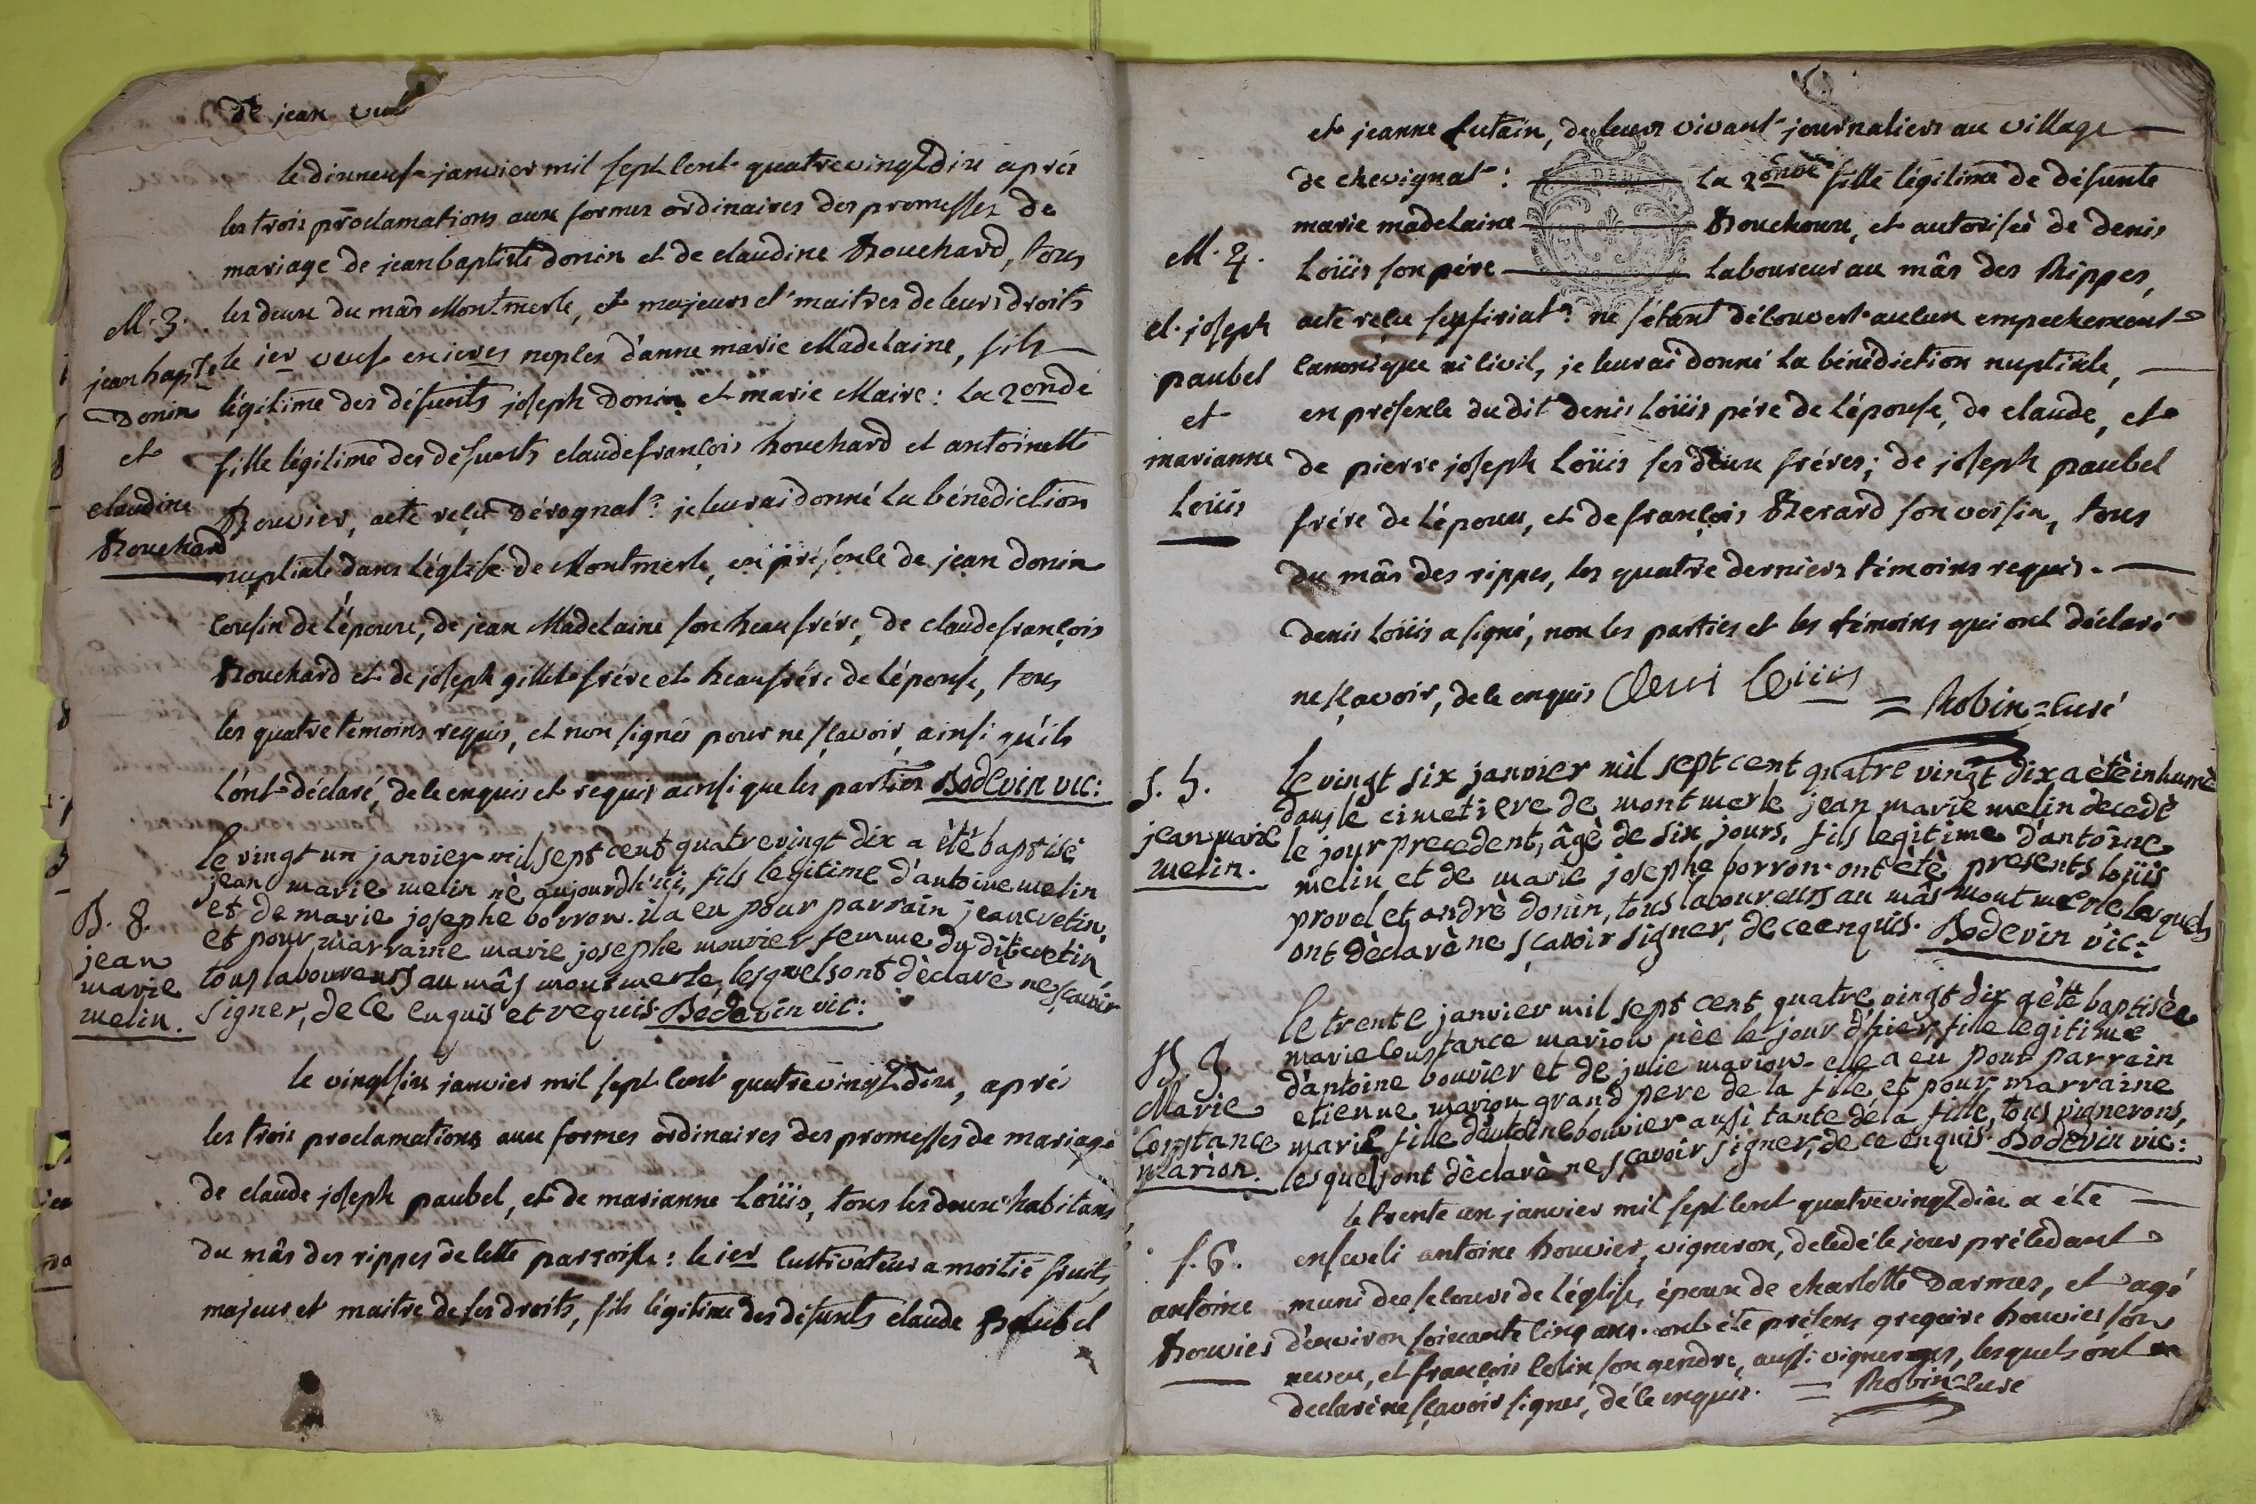 de jean
le dixneuf janvier mil sept cent quatrevingt dix après
les trois proclamations aux formes ordinaires des promesses de
mariage de jean baptiste donin et de claudine Bouchard, tous
les deux du mâs Montmerle, et majeurs et maitres de leurs droits
M. 3.
jean bapte
Donin
et
claudine
Bouchard
le ier veuf en ieres noples d'anne marie Madelaine, fils
légitime des défunts joseph Donin et marie Maire : la 2onde
fille légitime des défunts claude françois bouchard et antoinette
Bouvier, acte reçu Dérognat r je leur ai donné la bénédiction
nuptiale dans l'église de Montmerle, en présence de jean donin
cousin de l'époux, de jean Madelaine son beaufrére, de claudefrançois
Bouchard et de joseph gillet frére et beaufrére de l'épouse, tous
les quatre témoins requis, et non signés pour ne sçavoir, ainsi qu'ils
l'ont déclaré, de le enquis et requis ainsi que les parties Bodevin vic:
B. 8.
jean
marie
melin.
le vingt un janvier mil sept cent quatre vingt dix a èté baptisé
jean marie melin né aujourd'hui, fils legitime d'antoine melin
et de marie josephe borron. il a eu pour parrain jean vetin,
et pour marraine marie josephe mouvier femme du dit vetin
tous laboureurs au mâs montmerle, lesquels ont dèclarè ne sçavoir
signer, de ce enquis et requis. Bodevin vic:
le vingtsix janvier mil sept cent quatrevingt dix, apré
les trois proclamations aux formes ordinaires des promesses de mariage
de claude joseph paubel, et de marianne Loüis, tous les deux habitans
du mâs des rippes de cette parroisse : le ier cultivateur a moitié fruits,
majeur et maitre de ses droits, fils légitime des défunts claude Paubel
et jeanne Putain, de leur vivant journaliers au village
de chevignat : la 2onde fille légitime de défunte
marie madelaine Bouchoux, et autorisée de denis
M. 4.
cl. joseph
paubel
et
marianne
Loüis
Loüis son pére laboureur au mâs des Rippes,
acte reçu seyssiriat r. ne s'étant découvert aucun empechement
canonique ni civil, je leur ai donné la bénédiction nuptiale,
en présence du dit denis Loüis pére de l'épouse, de claude, et
de pierre joseph Loüis ses deux fréres; de joseph paubel
frére de l'époux, et de françois Berard son voisin, tous
du mâs des rippes, les quatre derniers témoins requis.
denis Loüis a signé, non les parties et les témoins qui ont déclaré
ne sçavoir, de le enquis Deni Louis = Robin = curé
S. 5.
jean marie
melin.
le vingt six janvier mil sept cent quatre vingt dix a èté inhumè
dans le cimetiere de montmerle jean marie melin decedè
le jour precedent, âgè de six jours, fils legitime d'antoine
melin et de marie josephe borron. ont èté presents loüis
provol et andrè donin, tous laboureurs au mâs mont merle lesquels
ont dèclarè ne sçavoir signer, de ce enquis. Bodevin vic:
B. 9.
Marie
Constance
marion.
le trente janvier mil sept cent quatre vingt dix a èté baptisèe
marie Constance marion nèe le jour d'hier, fille legitime
d'antoine bouvier et de julie marion. elle a eu pour parrain
etienne marion grand pere de la fille, et pour marraine
marie fille d'antoine bouvier aussi tante de la fille, tous vignerons,
lesquels ont dèclarè ne sçavoir signer, de ce enquis. Bodevin vic:
le trente un janvier mil sept cent quatrevingt dix a été
S. 6.
antoine
Bouvier
enseveli antoine bouvier, vigneron, decedé le jour précedant
muni des secours de l'église, époux de charlotte Darmes, et agé
d'environ soixante cinq ans. ont été présens gregoire bouvier son
neveu, et françois Colin son gendre, aussi vignerons, lesquels ont
declaré ne sçavoir signer, de le enquis. = Robin = curé